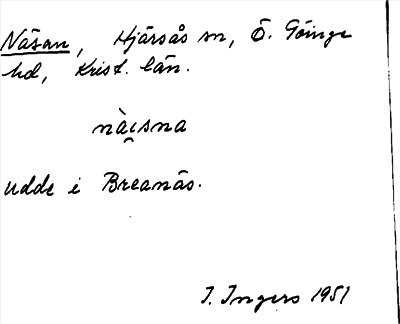 Näsan, Hjärsås sn, Ö. Göinge
hd, Krist. län.
nàɩ̯sna
udde i Breanäs.
I. Ingers 1951